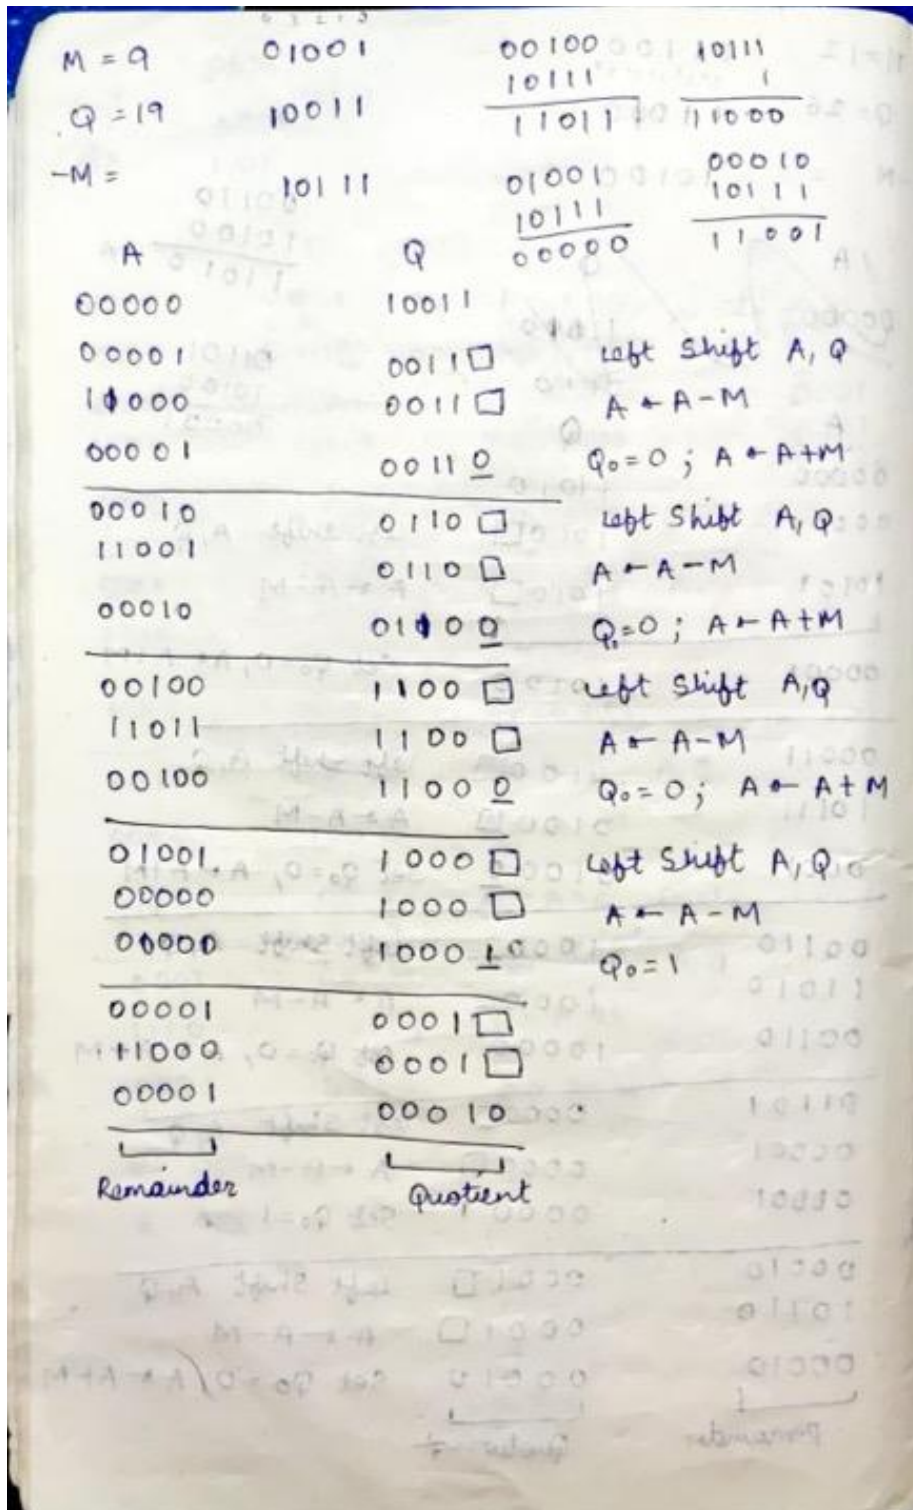 M = 9 01001 00100 10111
10111 1
Q = 19 10011 11011 11000
-M = 10111 01001 00010
10111 10111
00000 11001
A Q
00000 10011
00001 0011□ Left Shift A, Q
11000 0011□ A ← A-M
00001 00110 Q0=0 ; A ← A+M
00010 0110□ Left Shift A, Q
11001 0110□ A ← A-M
00010 01100 Q0=0 ; A ← A+M
00100 1100□ Left Shift A,Q
11011 1100□ A ← A-M
00100 11000 Q0=0; A ← A+M
01001 1000□ Left Shift A,Q
00000 1000□ A ← A-M
00000 10001 Q0=1
00001 0001□
11000 0001□
00001 00010
Remainder Quotient